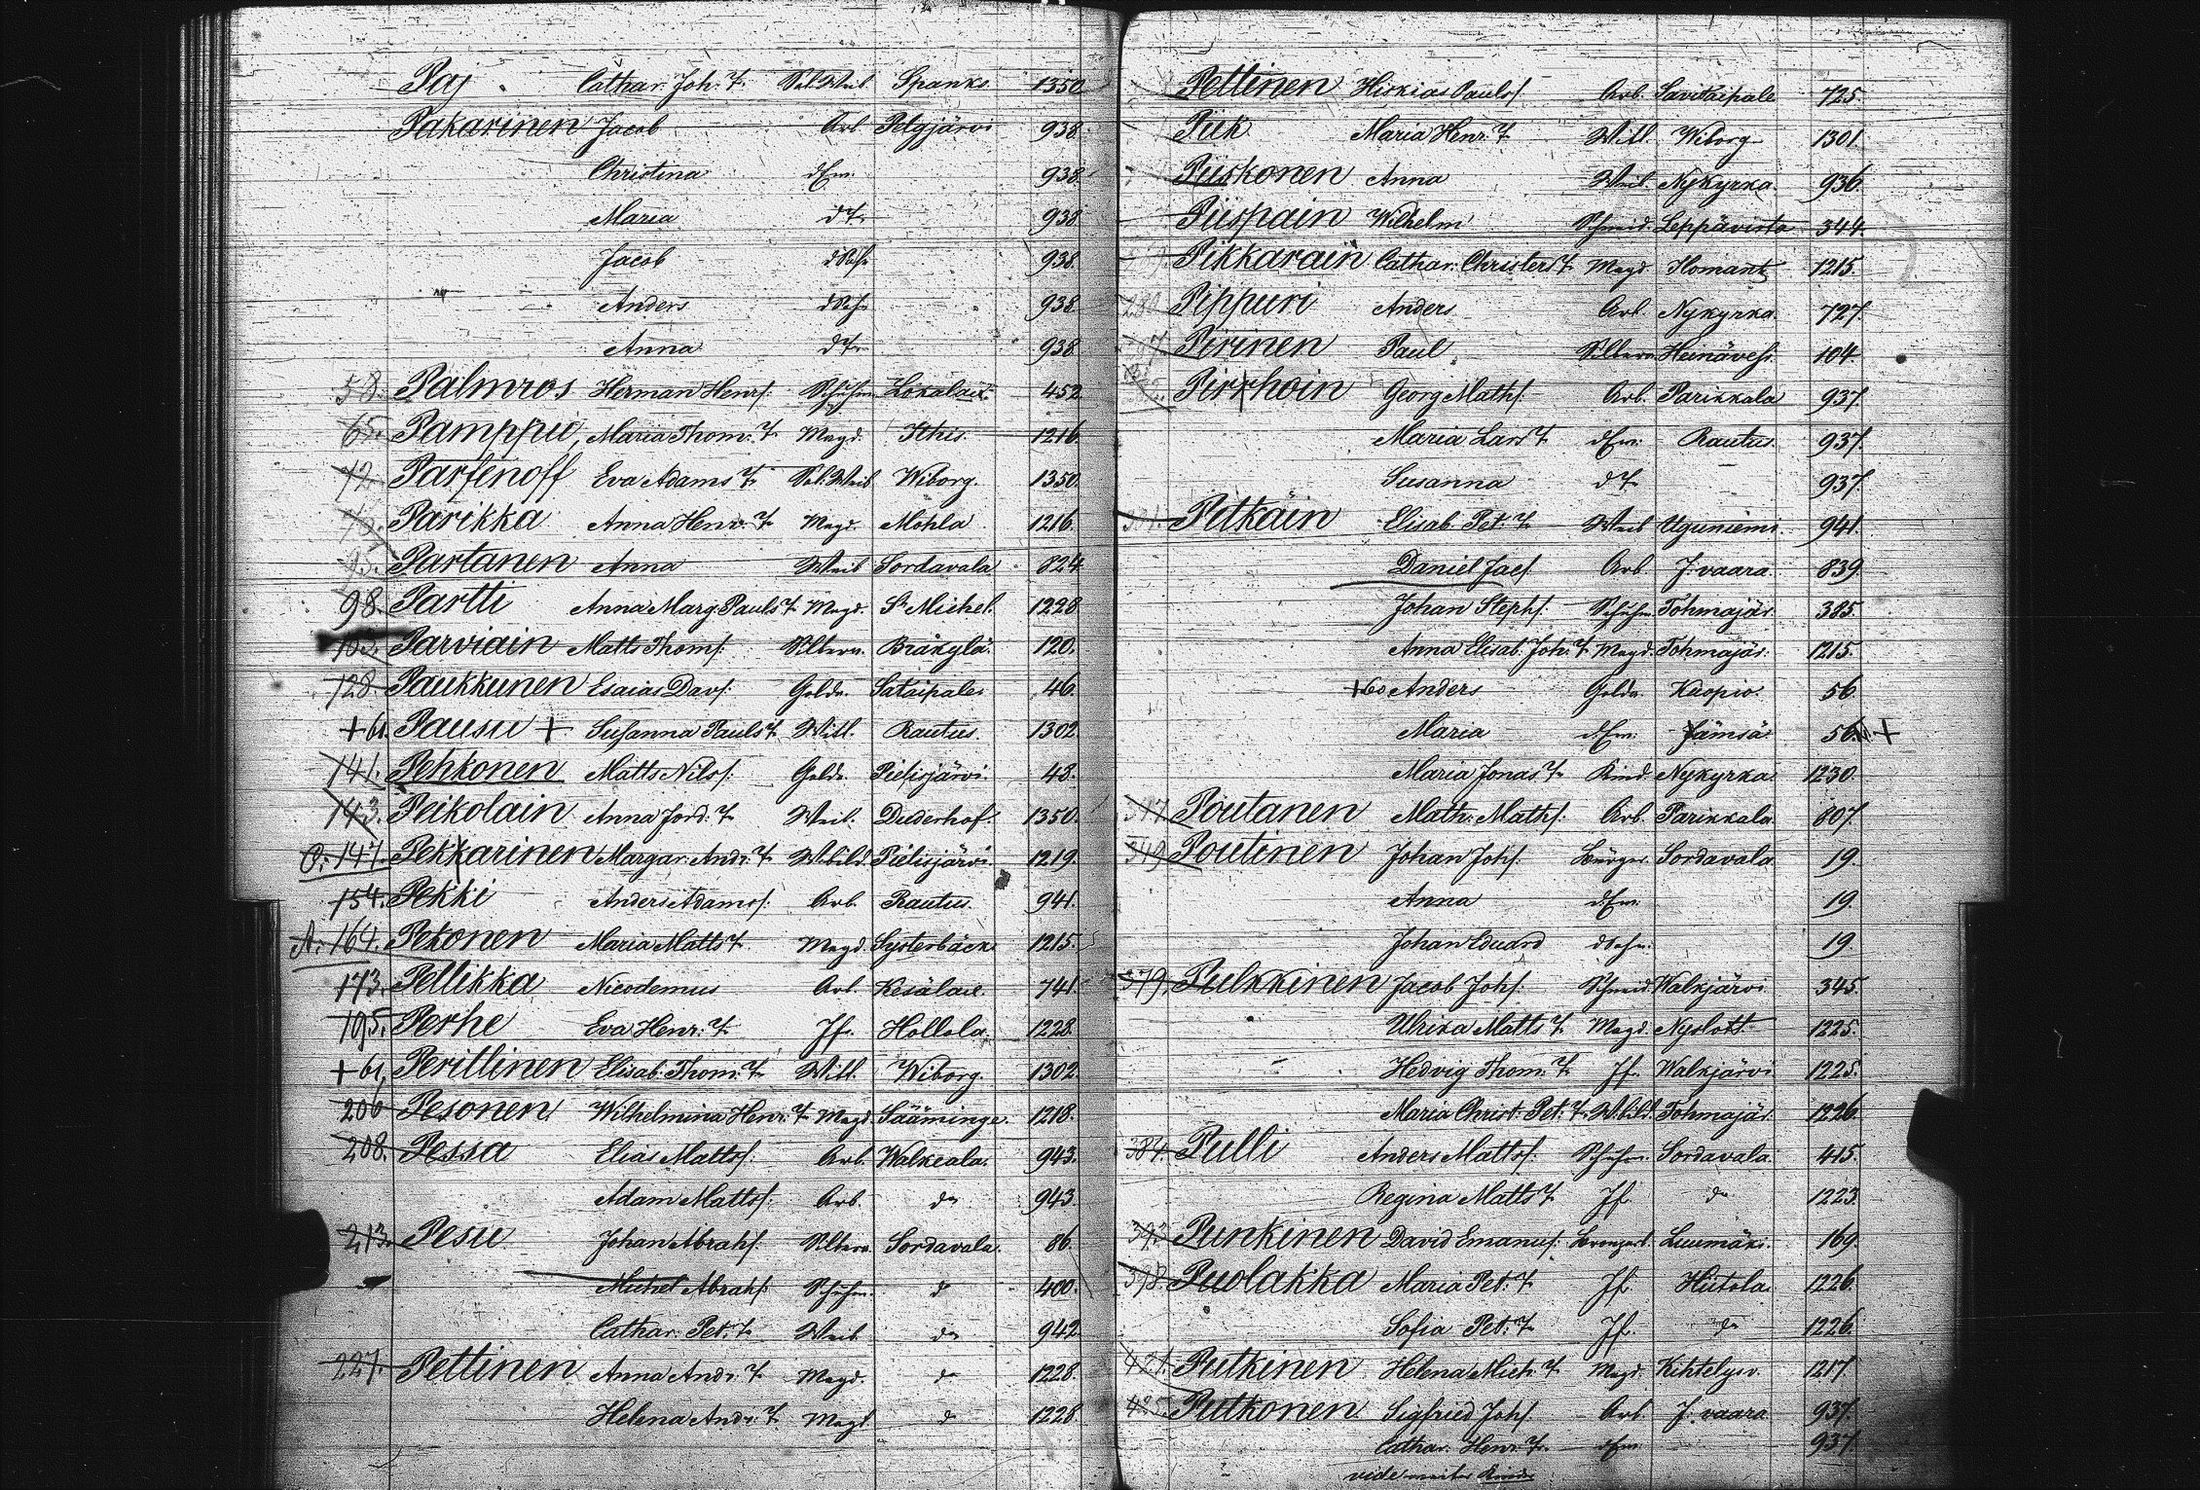 Paj Cathar. Joh. T. Sol. Weib. Spanko. 1350
Pakarinen Jacob Arb. Pelgjärvi 938.
Christina dEw. 938.
Maria dT. 938
Jacob dSohn 938.
Anders dSohn 938
Anna dT. 938
58. Palmros Herman Henrs. Schuhm. Lokalax. 452
65. Pamppu, Maria Thom. T. Magd. Ithis. 1216
72. Parfenoff Eva Adams T. Sol. Weib Wiborg. 1350.
Parikka Anna Henr. T. Magd. Mohla 1216.
93. Partanen Anna Weib Sordavala 824
98. Partti Anna Marg. Pauls T. Magd. St Michel. 1228
103. Parviain Matts Thoms. Silberw. Bräkylä. 120.
128. Paukkunen Esaias Davs. Golda. Sataipale 46.
+61. Pausu + Susanna Pauls T. Witl. Rautus. 1302
141. Pehkonen Matts Nilss. Golda. Pielisjärvi 48.
143. Peikolain Anna Jord. T. Weib. Duderhof. 1350.
O. 147. Pekkarinen Margar. Andr. T. Wbild. Pielisjärvi. 1219.
154. Pekki Anders Adams. Arb. Rautus. 941.
A. 164. Pekonen Maria Matts T. Magd. Systerbäck 1215.
173. Pellikka Nicodemus Arb. Kesälax. 741.
195. Perhe Eva Henr. T. Jf. Hollola. 1228.
+61, Perittinen Elisab. Thom. T. Witl. Wiborg. 1302
206 Pesonen Wilhelmina Henr. T. Magd. Sääminge. 1218.
208. Pessa Elias Matts. Arb. Walkeala. 943.
Adam Matts. Arb. do 943.
213. Pesu Johan Abrahs. Silberw. Sordavala. 86.
Michel Abrahs. Schuhm. d 400.
Cathar. Pet. T. Weib do 942
227. Pettinen Anna Andr. T. Magd. d 1228.
Helena Andr. T. Magd. d 1228
Pettinen Hiskias Pauls. Arb. Savitaipale 725.
Piek Maria Henr. T. Witl. Wiborg 1301.
Piiskonen Anna Weib. Nykyrka. 936.
Piispain Wilhelm Schneid. Leppävirta 344.
Pikkarain Cathar. Christers T. Magd. Ilomants 1215.
280 Pippuri Anders Arb. Nykyrka. 727.
Pirinen Paul Silberw. Heinävesi. 104.
Pirrhoin Georg Maths. Arb. Parikkala 937.
Maria Lars T. dEw. Rautus. 937.
Susanna dT. 937.
Pitkäin Elisab. Pet. T. Weib Uguniemi. 941.
Daniel Jacs. Arb. J. vaara. 839.
Johan Stephs. Schuhm. Tohmajär. 385.
Anna Elisab. Joh. T. Magd. Tohmajär. 1215.
+60 Anders Golda. Kuopio. 56.
Maria dEw. Jämsä 56. +
Maria Jonas T. Kind Nykyrka. 1230.
347 Poutanen Math. Maths. Arb. Parikkala. 807.
349 Poutinen Johan Johs. Bürger. Sordavala. 19.
Anna dEw. 19.
Johan Eduard dSohn. 19.
379. Pulkkinen Jacob Johs. Schneid. Walkjärvi. 345.
Ulrika Matts T. Magd. Nyslott 1225.
Hedvig Thom. T. Jf. Walkjärvi 1225.
Maria Christ. Pet. T. Wbild. Tohmajär. 1226.
384. Pulli Anders Matts. Schuhm. Sordavala. 415.
Regina Matts T. Jf. do 1223.
392 Punkinen David Emanus. Bronzearb. Luumäki. 169.
398. Puolakka Maria Pet. T. Jf. Hiitola. 1226.
Sofia Pet. T. Jf. do 1226.
421. Putkinen Helena Mich. T. Magd. Kihtelysv. 1217.
425. Putkonen Sigfried Johs. Arb. J. vaara. 937.
Cathar. Henr. T. dEw. 937.
vide weiter Kinder